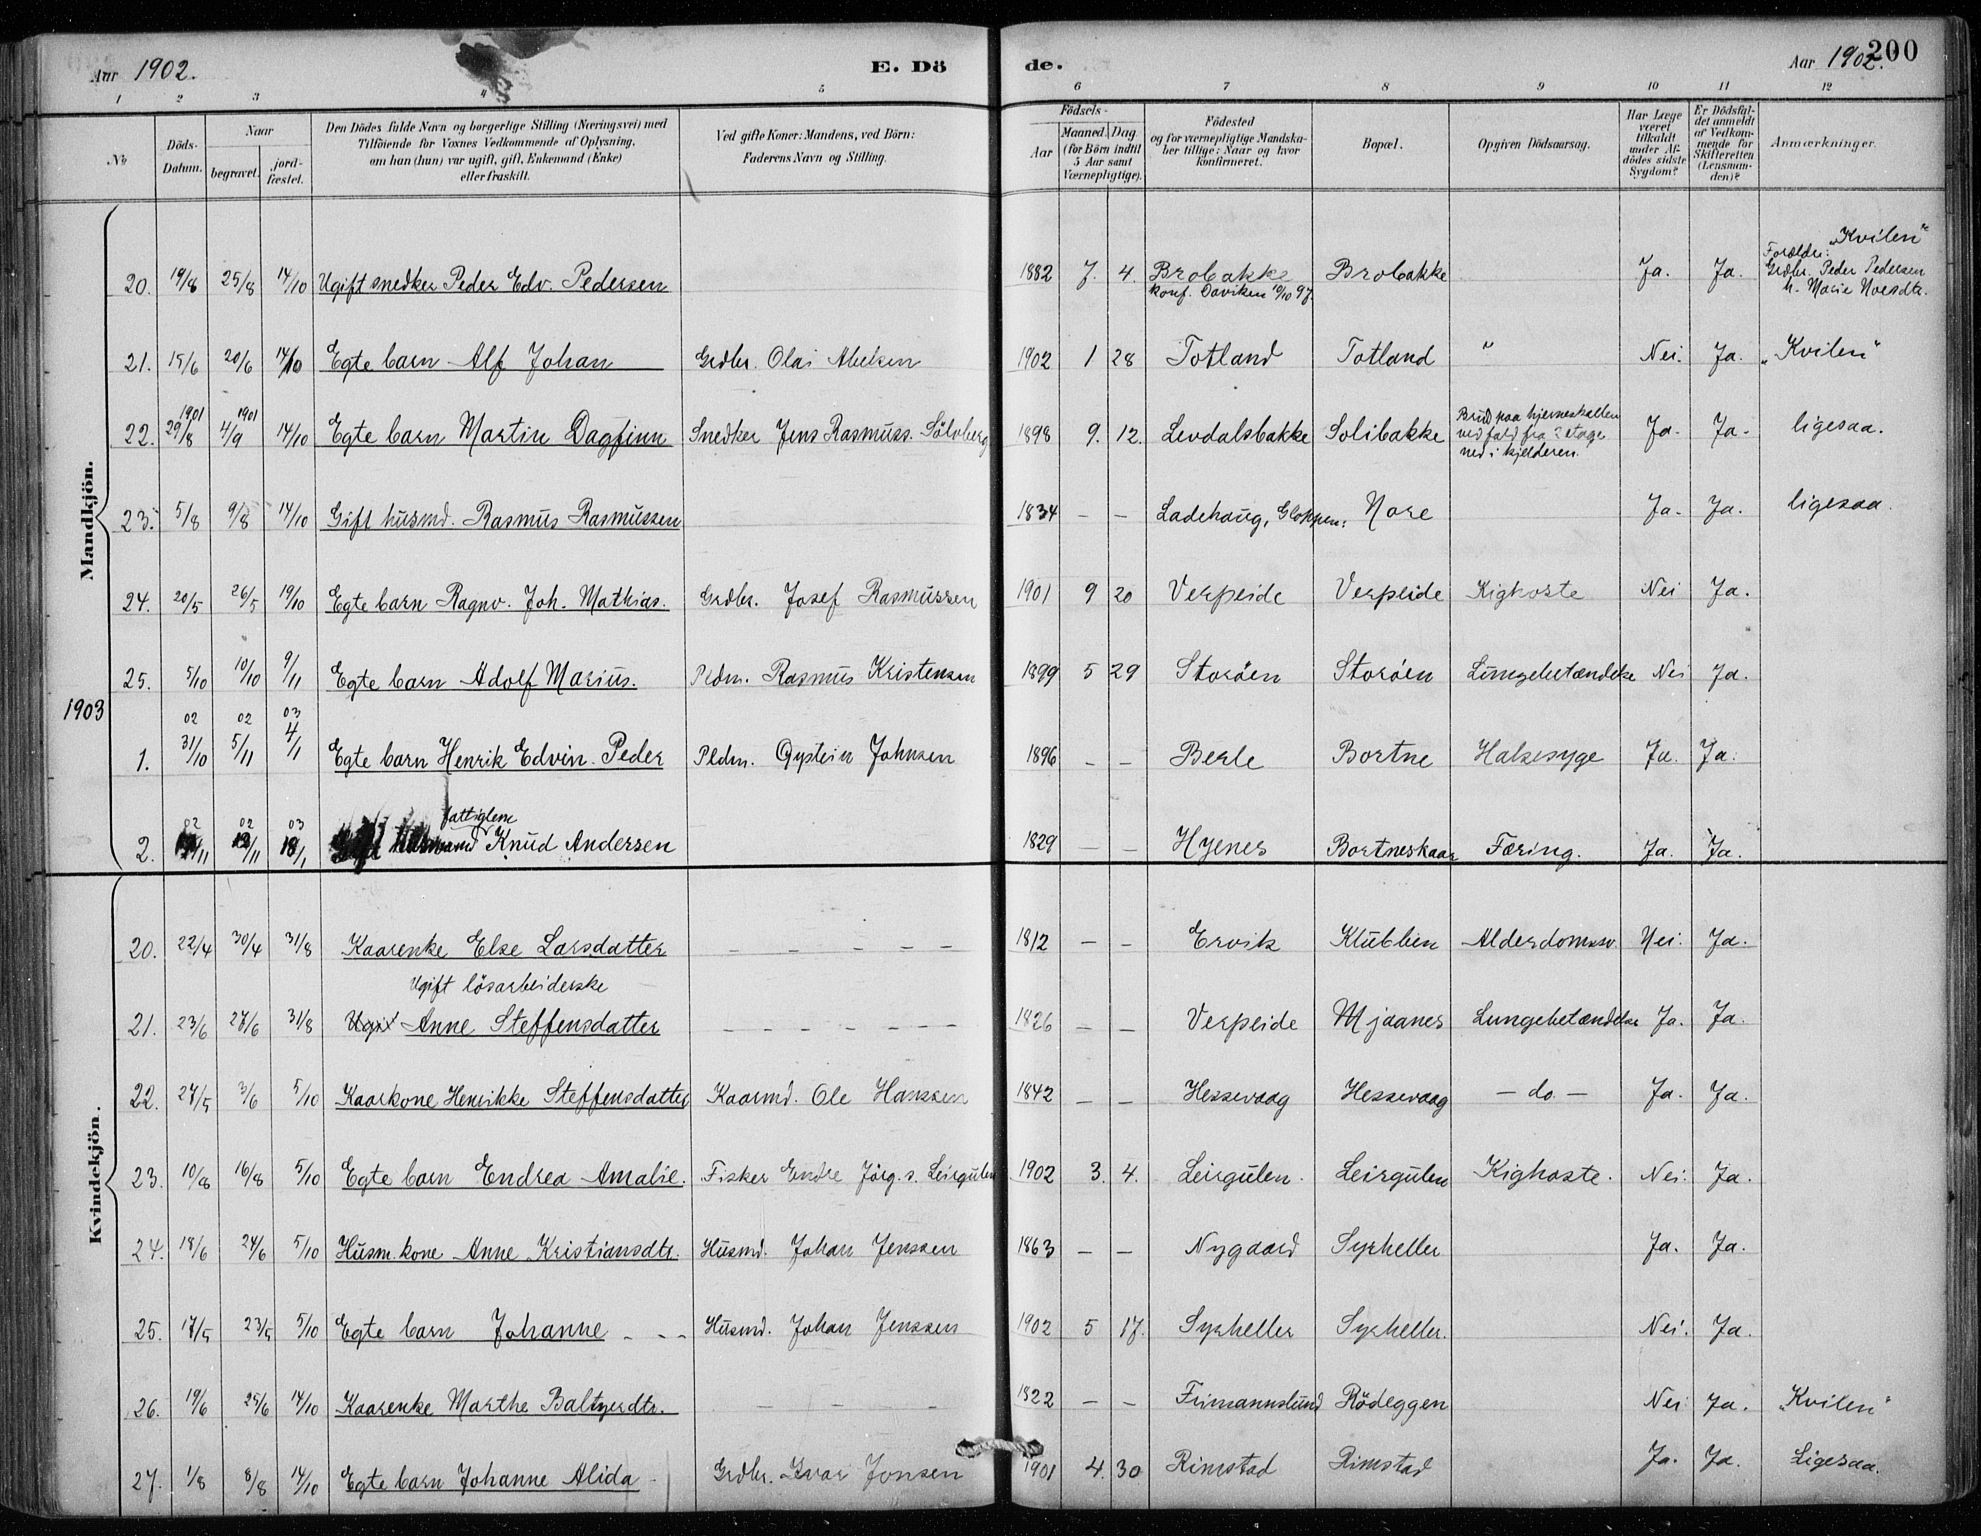 Aar 1902. E. Dö de. Aar 1902. 200
1 2 3 4 5 6 7 8 9 10 11 12
No Döds-Datum. Naar begravet. jord-fæstet. Den Dödes fulde Navn og borgerlige Stilling (Næringsvei) med Tilföiende for Voxnes Vedkommende af Oplysning, om han (hun) var ugift, gift, Enkemand (Enke) eller fraskilt. Ved gifte Koner: Mandens, ved Börn: Faderens Navn og Stilling. Födsels- Aar Maaned. Dag (for Börn indtil 5 Aar samt Værnepligtige). Födested og for værnepligtige Mandska-ber tillige: Naar og hvor konfirmeret. Bopæl. Opgiven Dödsaarsag. Har Læge været tilkaldt under Af-dödes sidste Sygdom? Er Dödsfal-det anmeldt af Vedkom-mende for Skifteretten (Lensman-den)? Anmærkninger.
Mandkjön.
20. 19/8 25/8 14/10 Ugift snedker Peder Edv. Pedersen 1882 7. 4. Brobakke konf. Daviken 10/10 97. Brobakke Ja. Ja. "Kvilen" Forældre: Grdbr. Peder Pedersen h. Marie
21. 15/6 20/6 14/10 Egte barn Alf Johan Grdbr. Olai Abelsen 1902 1 28 Totland Totland " Nei. Ja. "Kvilen"
22. 1901 29/8 1901 4/9 14/10 Egte barn Martin Dagfinn Snedker Jens Rasmuss. Sölvberg 1898 9. 12. Levdalsbakke Solibakke Brud paa hjerneskallen ved fald fra etage ned i kjelderen. Ja. Ja. ligesaa.
23. 5/8 9/8 14/10 Gift husmd. Rasmus Rasmussen 1834 – – Ladehaug, Gloppen. Nore Ja. Ja. ligesaa.
24. 20/5 26/5 19/10 Egte barn Ragnv. Joh. Mathias. Grdbr. Josef Rasmussen 1901 9 20 Verpeide Verpeide Kighoste Nei Ja.
25. 5/10 10/10 9/11 Egte barn Adolf Marius. Pldm. Rasmus Kristensen 1899 5 29 Storöen Storöen Lungebetændelse Nei Ja.
1903
1. 02 31/10 02 5/11 03 4/1 Egte barn Henrik Edvin Peder Pldm. Øystein Johnsen 1896 – – Berle Bortne Halsesyge Ja. Ja.
2. 02 02 03 18/1 fattiglem Knud Andersen 1829 – – Hyenes Bortneskaar Tæring. Ja. Ja.
Kvindekjön.
20. 22/4 30/4 31/8 Kaarenke Else Larsdatter – – – – – – 1812 – – Ervik Klubben Alderdomssv. Nei. Ja.
Ugift lösarbeiderske
21. 23/6 27/6 31/8 Ugift Anne Steffensdatter – – – – – – – 1826 – – Verpeide Mjaanes Lungebetændelse Ja. Ja.
22. 27/5 3/6 5/10 Kaarkone Henrikke Steffensdatter Kaarmd. Ole Hanssen 1842 – – Hessevaag Hessevaag – do – Ja. Ja.
23. 10/8 16/8 5/10 Egte barn Endrea Amalie. Fisker Endre Jörg. s. Leirgulen 1902 3. 4. Leirgulen. Leirgulen Kighoste. Nei. Ja.
24. 18/6 24/6 5/10 Husm. kone Anne Kristiansdtr. Husmd. Johan Jenssen 1863 – – Nygaard Syrheller Ja. Ja.
25. 17/5 23/5 5/10 Egte barn Johanne – – – Husmd. Johan Jenssen 1902 5 17. Syrheller Syrheller. Nei. Ja.
26. 19/6 25/6 14/10 Kaarenke Marthe Baltzerdtr. – – – – 1822 – – Frimannslund Rödeggen Nei Ja. "Kvilen"
27. 1/8 8/8 14/10 Egte barn Johanne Alida Grdbr. Ivar Jonsen 1901 4. 30 Rimstad Rimstad Ja. Ja. Ligesaa.